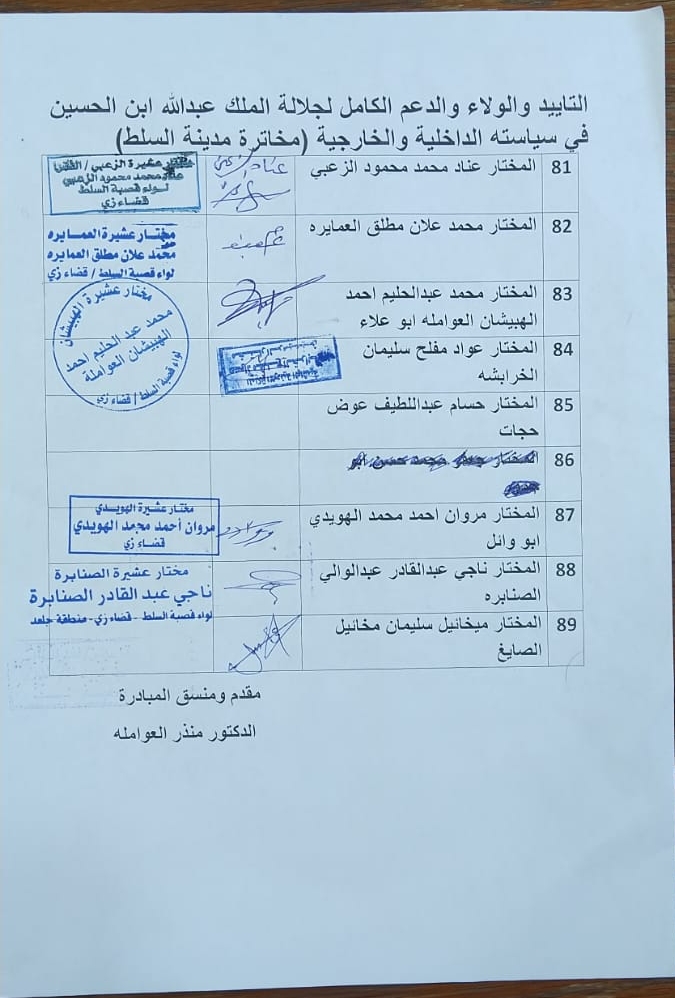 التاييد والولاء والدعم الكامل لجلالة الملك عبدالله ابن الحسين
في سياسته الداخلية والخارجية (مخاترة مدينة السلط)
81 المختار عناد محمد محمود الزعبي
مختار عشيرة الزعبي /
عناد محمد محمود الزعبي
لواء قصبة السلط
قضاء زي
82 المختار محمد علان مطلق العمايره
مختار عشيرة العمايره
محمد علان مطلق العمايره
لواء قصبة السلط / قضاء زي
83 المختار محمد عبدالحليم احمد
الهبيشان العوامله ابو علاء
مختار عشيرة الهبيشان
محمد عبد الحليم احمد
الهبيشان العواملة
لواء قصبة السلط / قضاء زي
84 المختار عواد مفلح سليمان
الخرابشه
85 المختار حسام عبداللطيف عوض
حجات
86
87 المختار مروان احمد محمد الهويدي
ابو وائل
مختار عشيرة الهويدي
مروان أحمد محمد الهويدي
قضاء زي
88 المختار ناجي عبدالقادر عبدالوالي
الصنابره
مختار عشيرة الصنابرة
ناجي عبد القادر الصنابرة
لواء قصبة السلط - قضاء زي - منطقة جلعد
89 المختار ميخائيل سليمان مخائيل
الصايغ
مقدم ومنسق المبادرة
الدكتور منذر العوامله